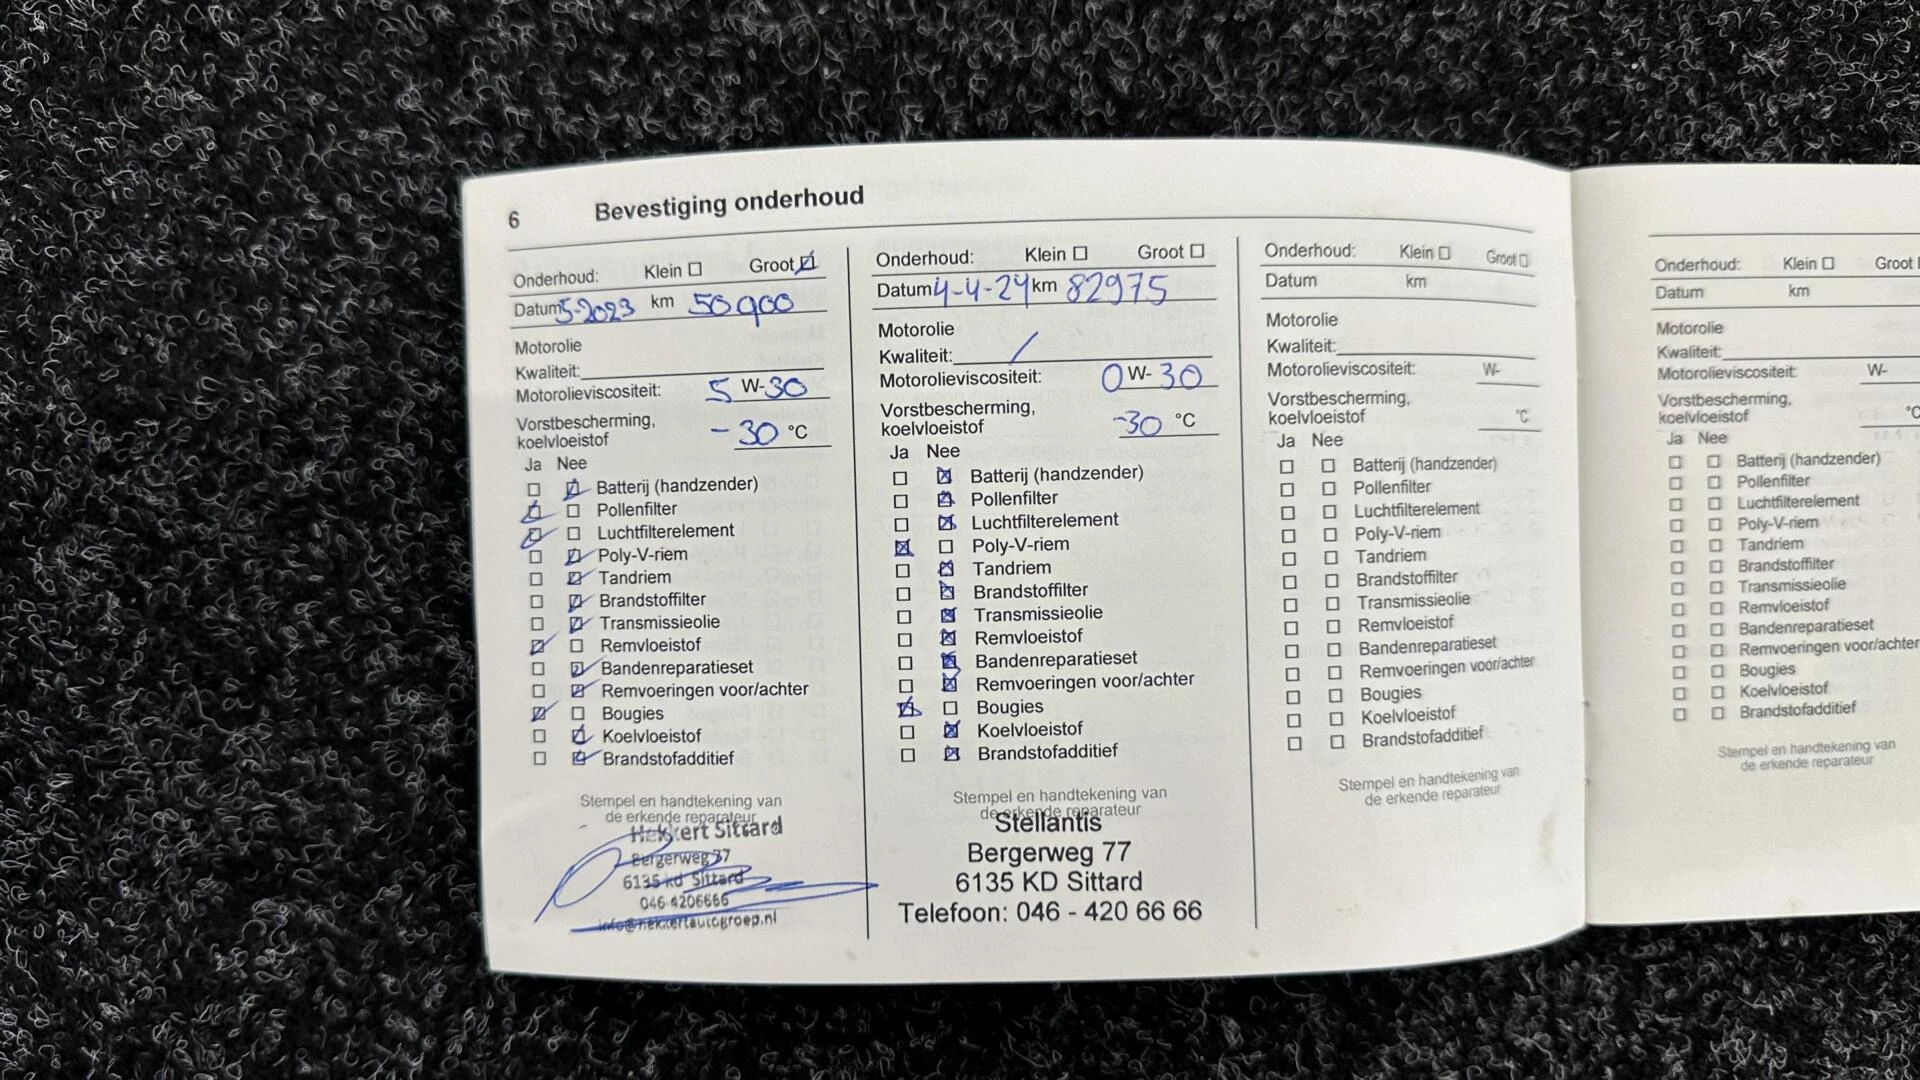 6 Bevestiging onderhoud
Onderhoud: Klein Groot
Datum 5-2023 km 50900
Motorolie
Kwaliteit:
Motorolieviscositeit: 5 W-30
Vorstbescherming,
koelvloeistof -30 °C
Ja Nee
Batterij (handzender)
Pollenfilter
Luchtfilterelement
Poly-V-riem
Tandriem
Brandstoffilter
Transmissieolie
Remvloeistof
Bandenreparatieset
Remvoeringen voor/achter
Bougies
Koelvloeistof
Brandstofadditief
Stempel en handtekening van
de erkende reparateur
Hekkert Sittard
Bergerweg 77
6135 kd Sittard
046 4206666
info@hekkertautogroep.nl
Onderhoud: Klein Groot
Datum 4-4-24 km 82975
Motorolie
Kwaliteit: /
Motorolieviscositeit: 0 W-30
Vorstbescherming,
koelvloeistof -30 °C
Ja Nee
Batterij (handzender)
Pollenfilter
Luchtfilterelement
Poly-V-riem
Tandriem
Brandstoffilter
Transmissieolie
Remvloeistof
Bandenreparatieset
Remvoeringen voor/achter
Bougies
Koelvloeistof
Brandstofadditief
Stempel en handtekening van
de erkende reparateur
Stellantis
Bergerweg 77
6135 KD Sittard
Telefoon: 046 - 420 66 66
Onderhoud: Klein Groot
Datum km
Motorolie
Kwaliteit:
Motorolieviscositeit: W-
Vorstbescherming,
koelvloeistof °C
Ja Nee
Batterij (handzender)
Pollenfilter
Luchtfilterelement
Poly-V-riem
Tandriem
Brandstoffilter
Transmissieolie
Remvloeistof
Bandenreparatieset
Remvoeringen voor/achter
Bougies
Koelvloeistof
Brandstofadditief
Stempel en handtekening van
de erkende reparateur
Onderhoud: Klein Groot
Datum km
Motorolie
Kwaliteit:
Motorolieviscositeit: W-
Vorstbescherming,
koelvloeistof °C
Ja Nee
Batterij (handzender)
Pollenfilter
Luchtfilterelement
Poly-V-riem
Tandriem
Brandstoffilter
Transmissieolie
Remvloeistof
Bandenreparatieset
Remvoeringen voor/achter
Bougies
Koelvloeistof
Brandstofadditief
Stempel en handtekening van
de erkende reparateur